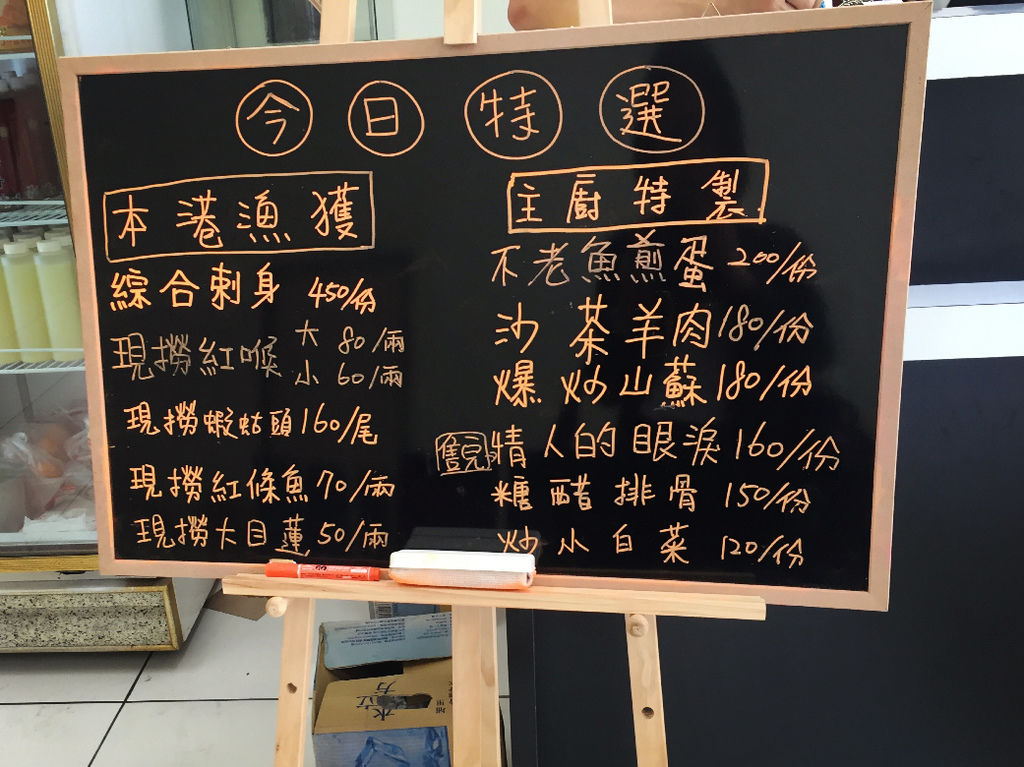 今日特選
本港漁獲
綜合刺身 450/份
現撈紅喉 大 80/兩
小 60/兩
現撈蝦蛄頭 160/尾
現撈紅條魚 70/兩
現撈大目蓮 50/兩
主廚特製
不老魚煎蛋 200/份
沙茶羊肉 180/份
爆炒山蘇 180/份
售完 情人的眼淚 160/份
糖醋排骨 150/份
炒小白菜 120/份
水立方